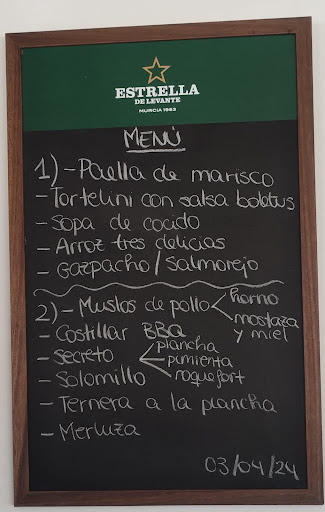 ESTRELLA
DE LEVANTE
MURCIA 1963
MENÚ
1) - Paella de marisco
- Tortelini con salsa boletus
- Sopa de cocido
- Arroz tres delicias
- Gazpacho / Salmorejo
2) - Muslos de pollo < horno
mostaza y miel
- Costillar BBQ
- Secreto
- Solomillo < plancha
pimienta
roquefort
- Ternera a la plancha
- Merluza
03/04/24